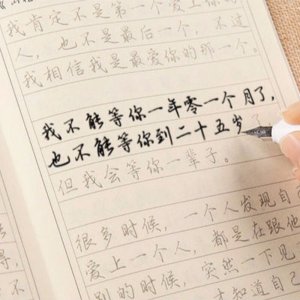 我肯定不是第一个爱上你的
人，也不是最后一个，不过
我相信我是最爱你的那一个。
我不能等你一年零一个月了，
也不能等你到二十五岁
但我会等你一辈子。
很多时候，一个人发现自
爱上一个人，都是在跟他
别的时候，突然一下见
知道自己